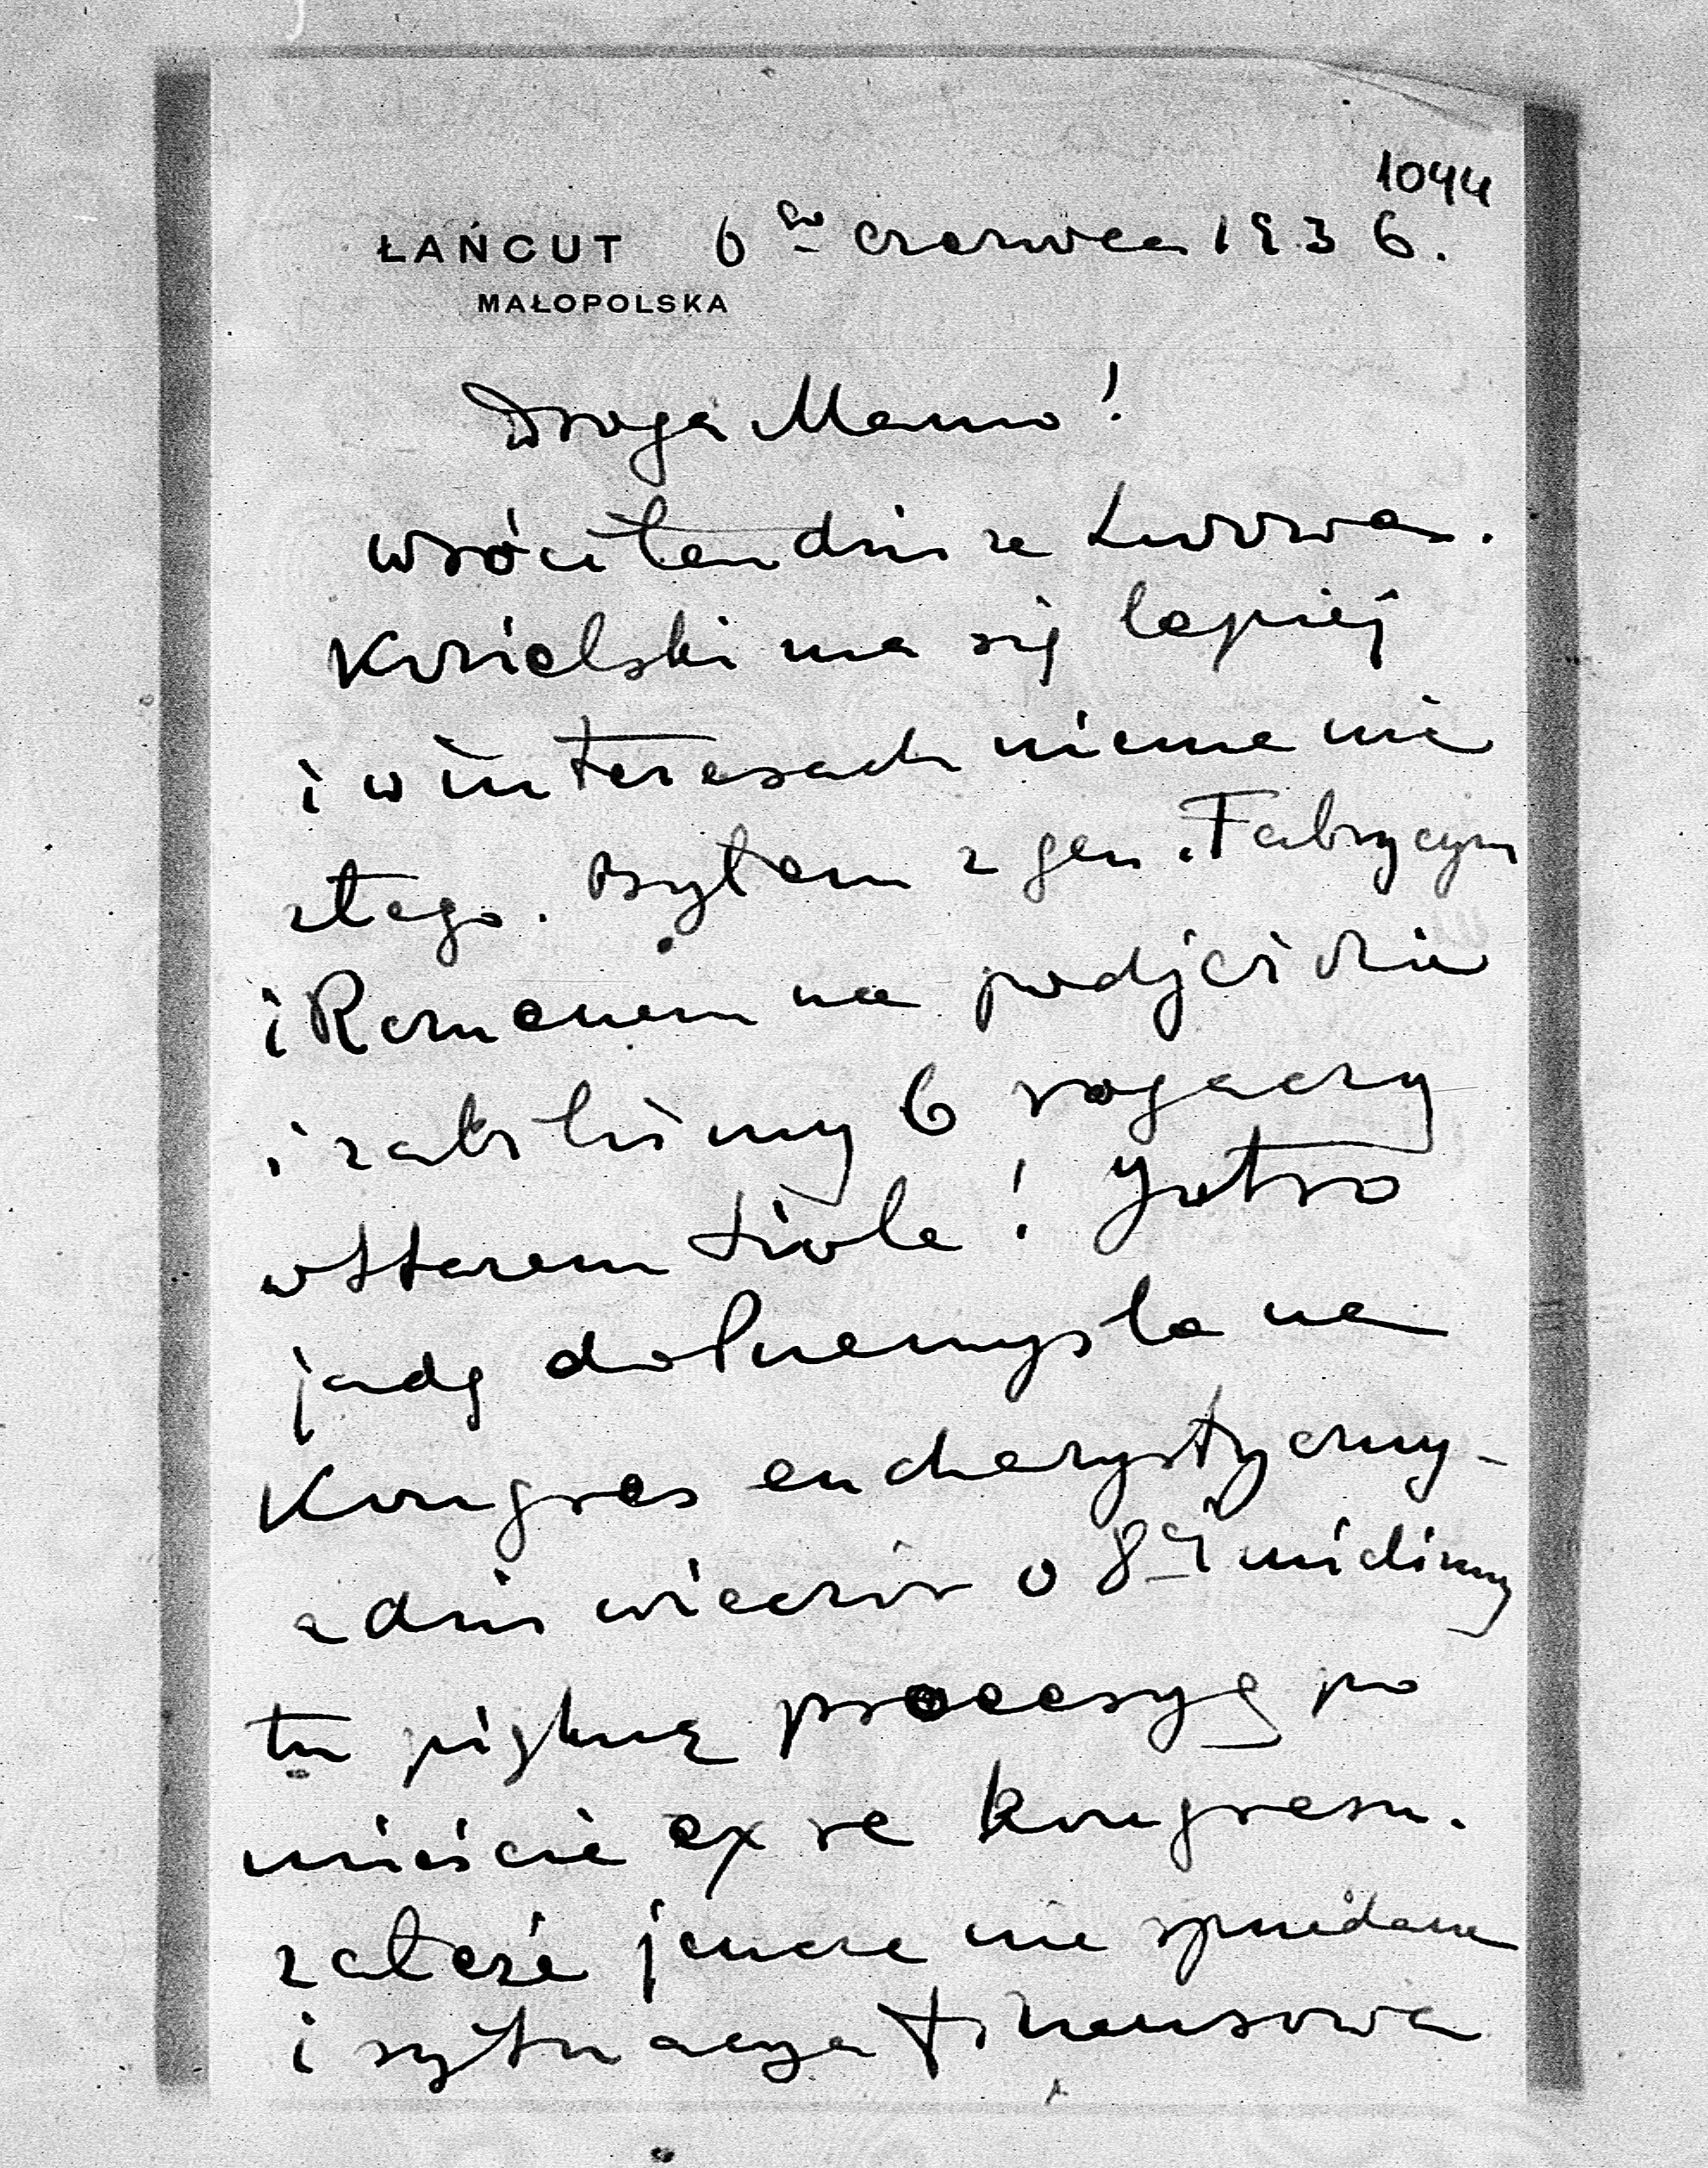 1044
ŁAŃCUT 6go czerwca 1936.
MAŁOPOLSKA
Droga Mamo!
wróciłem dziś ze Lwowa.
Kozielski ma się lepiej
i w interesach niema nic
złego. Byłem z gen. Fabrycym
i Romanem na podjeździe
i zabiliśmy 6 rogaczy
w starem siole! Jutro
jadę do Przemyśla na
Kongres eucharystyczny -
a dziś wieczór o 8ej mieliśmy
tu piękną procesyę po
mieście ex re kongresu.
Załoźe jeszcze nie sprzedane
i sytuacya finansowa